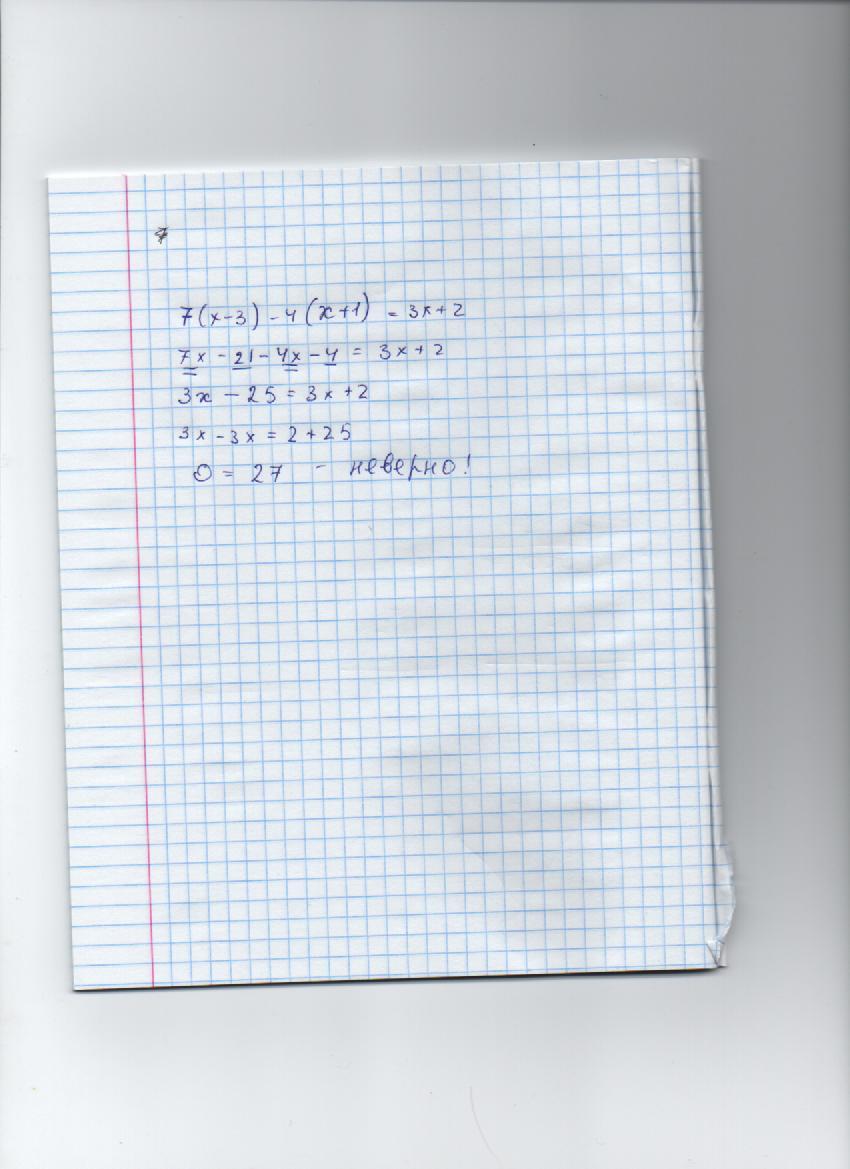 7(x-3) - 4(x+1) = 3x+2
7x - 21 - 4x - 4 = 3x+2
3x - 25 = 3x+2
3x - 3x = 2 + 25
0 = 27 - неверно!